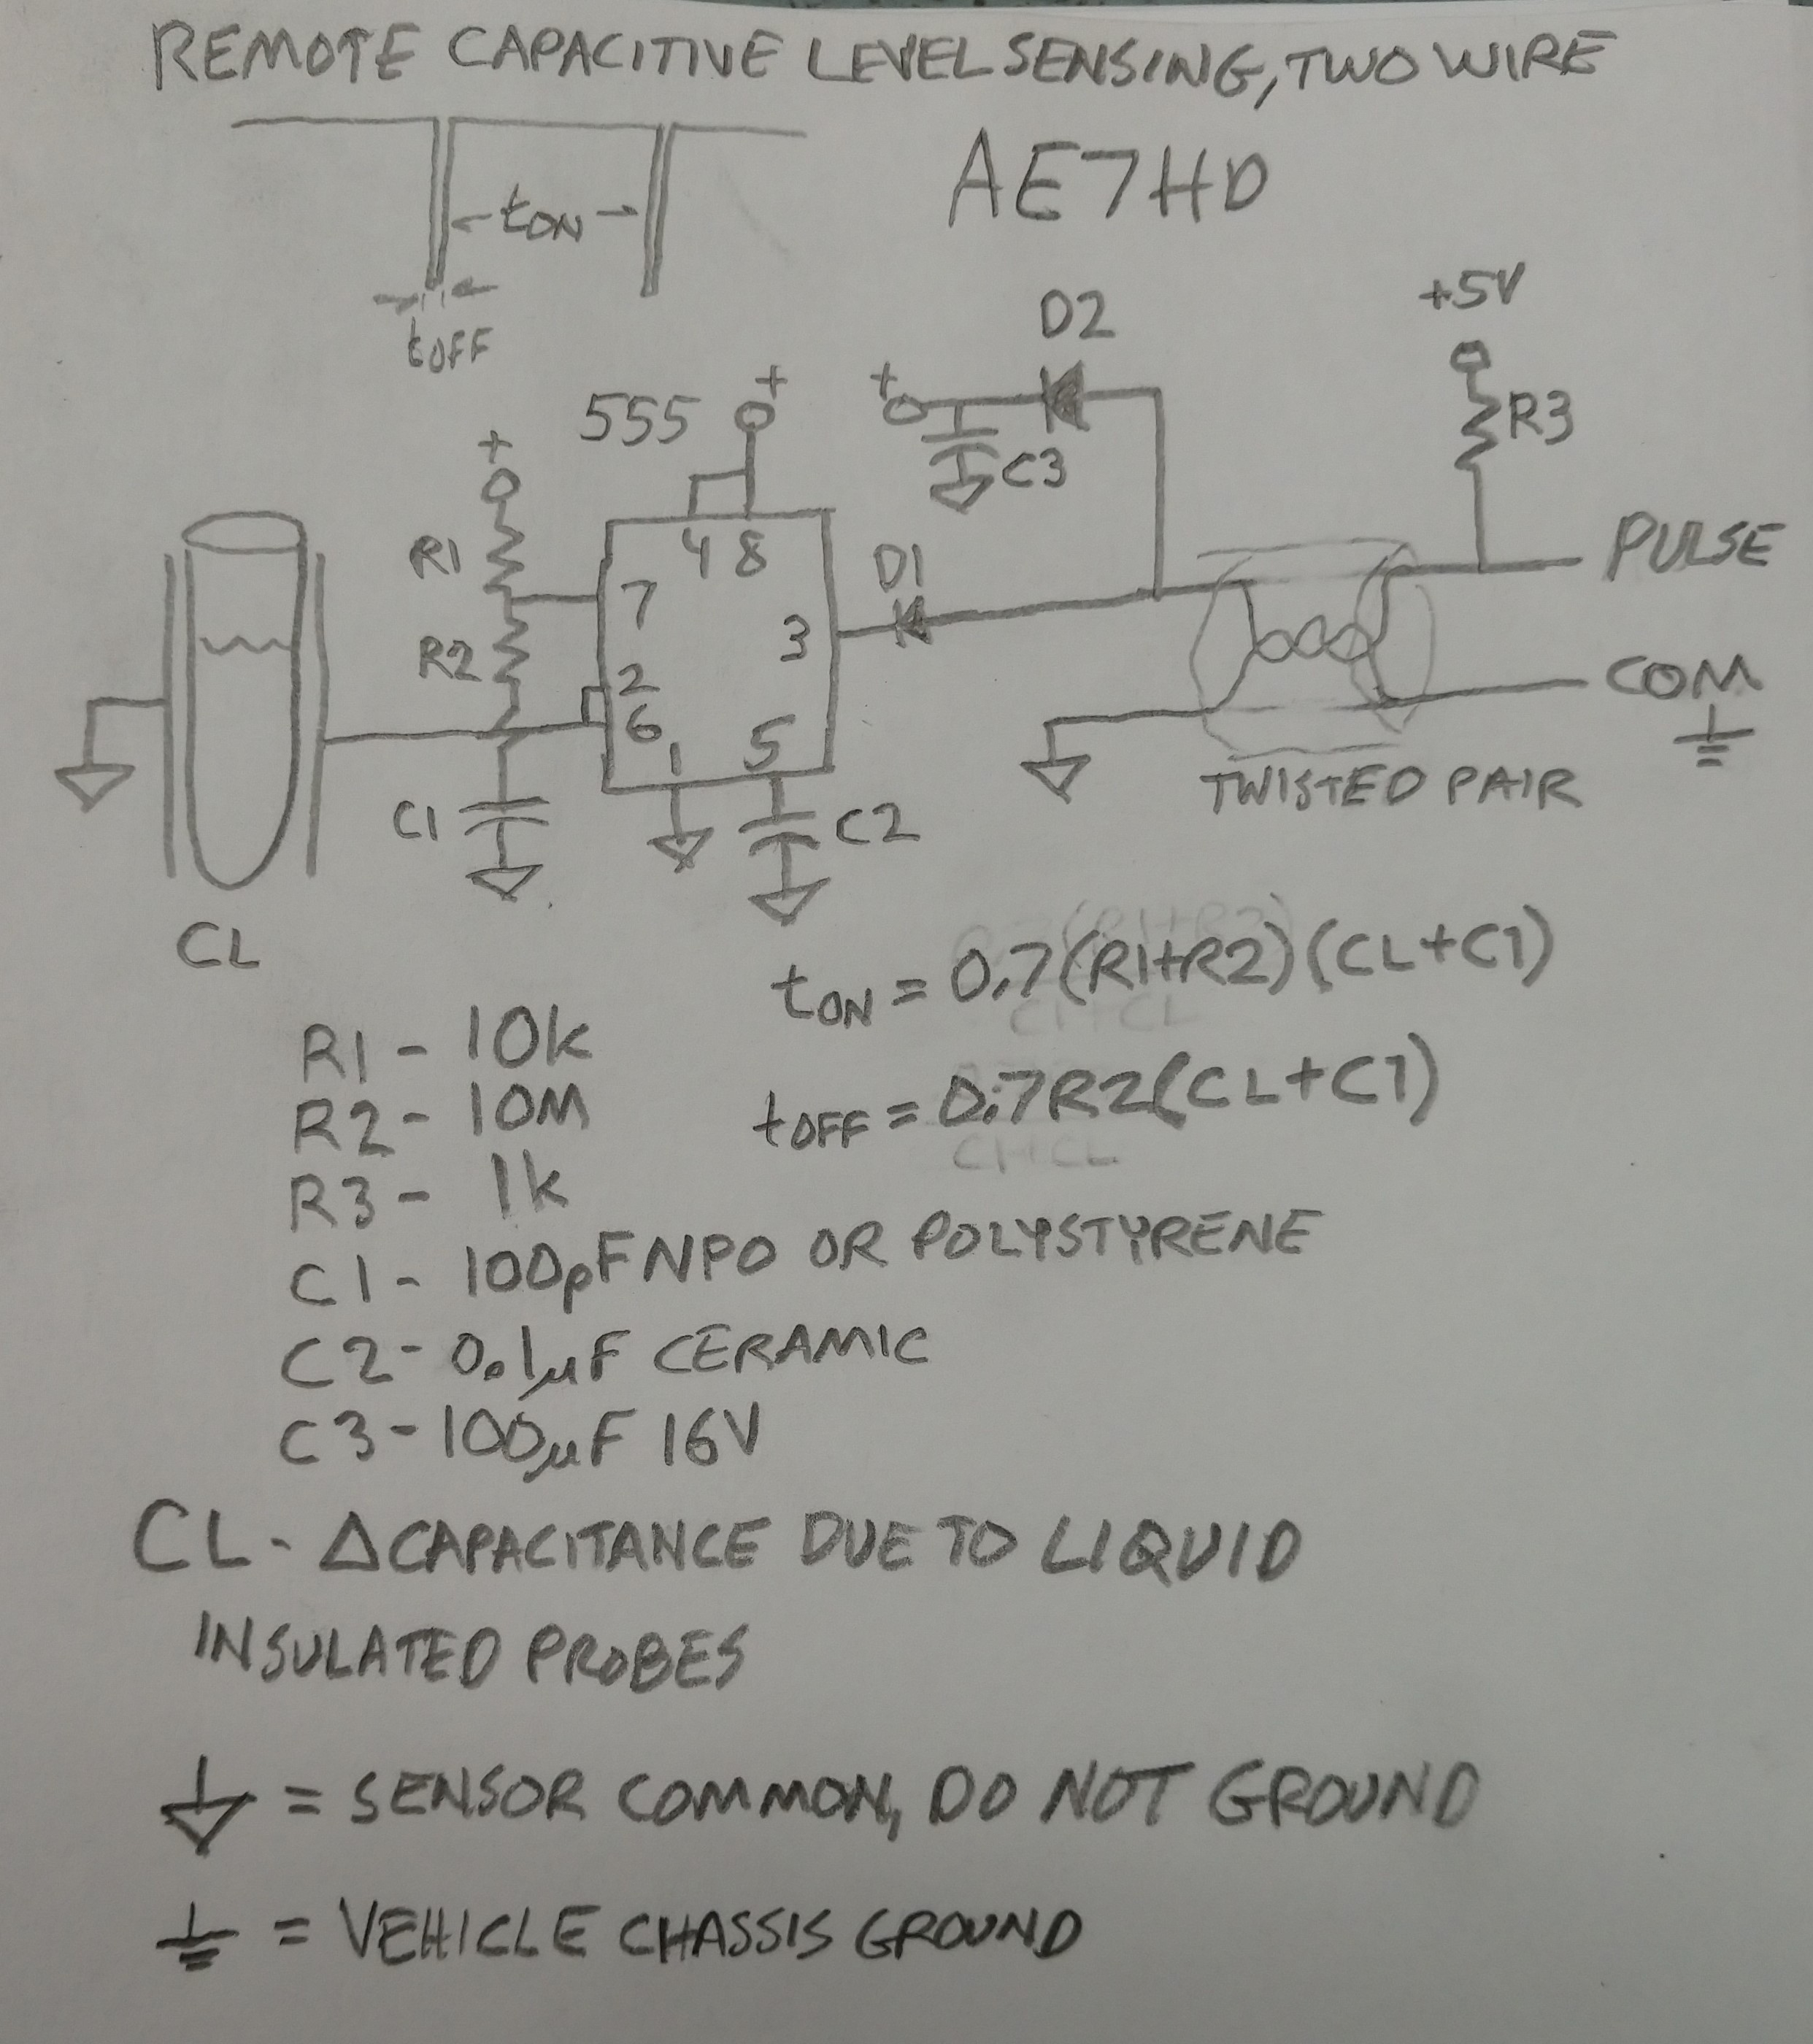 REMOTE CAPACITIVE LEVEL SENSING, TWO WIRE
AE7HD
tON
tOFF
555
+
+
+
D2
+5V
R3
C3
R1
R2
4 8
7
3
2
6
1 5
D1
PULSE
COM
TWISTED PAIR
C1
C2
CL
tON = 0.7(R1+R2)(CL+C1)
tOFF = 0.7R2(CL+C1)
R1 - 10k
R2 - 10M
R3 - 1k
C1 - 100pF NPO OR POLYSTYRENE
C2 - 0.1µF CERAMIC
C3 - 100µF 16V
CL - Δ CAPACITANCE DUE TO LIQUID
INSULATED PROBES
= SENSOR COMMON, DO NOT GROUND
= VEHICLE CHASSIS GROUND